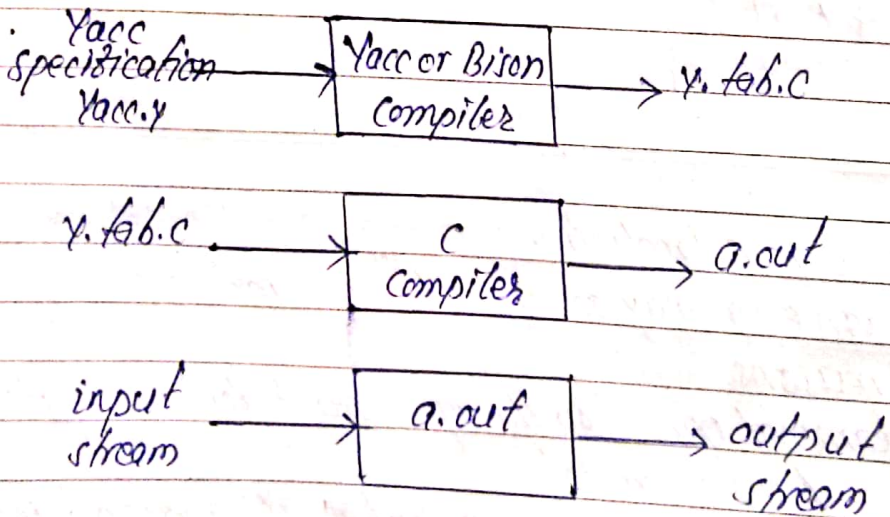 Yacc
specification
Yacc.y
Yacc or Bison
Compiler
y.tab.c
y.tab.c
C
Compiler
a.out
input
stream
a.out
output
stream